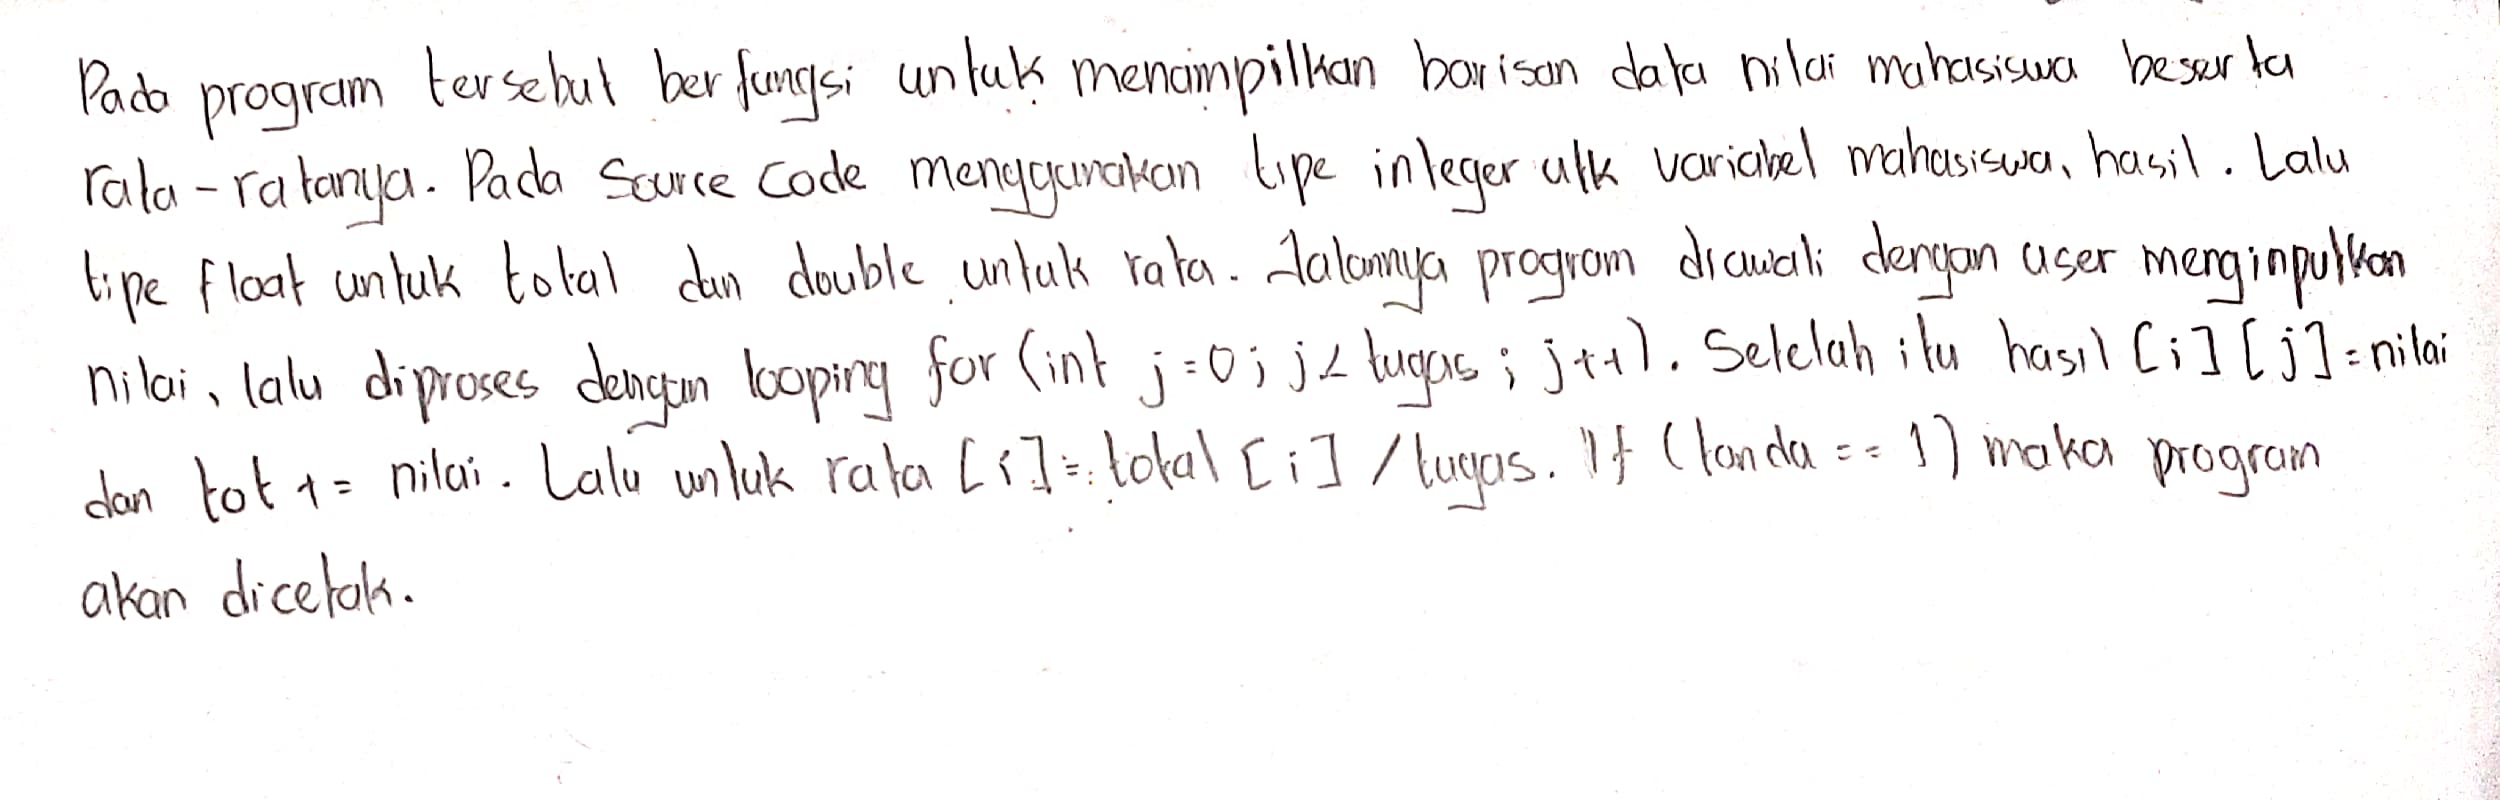 Pada program tersebut berfungsi untuk menampilkan barisan data nilai mahasiswa beserta
rata-ratanya. Pada source code menggunakan tipe integer utk variabel mahasiswa, hasil. Lalu
tipe float untuk total dan double untuk rata. Jalannya program diawali dengan user menginputkan
nilai, lalu diproses dengan looping for (int j=0; j< tugas; j++). Setelah itu hasil [i][j]=nilai
dan tot += nilai. Lalu untuk rata [i]= total [i] / tugas. If (tanda == 1) maka program
akan dicetak.